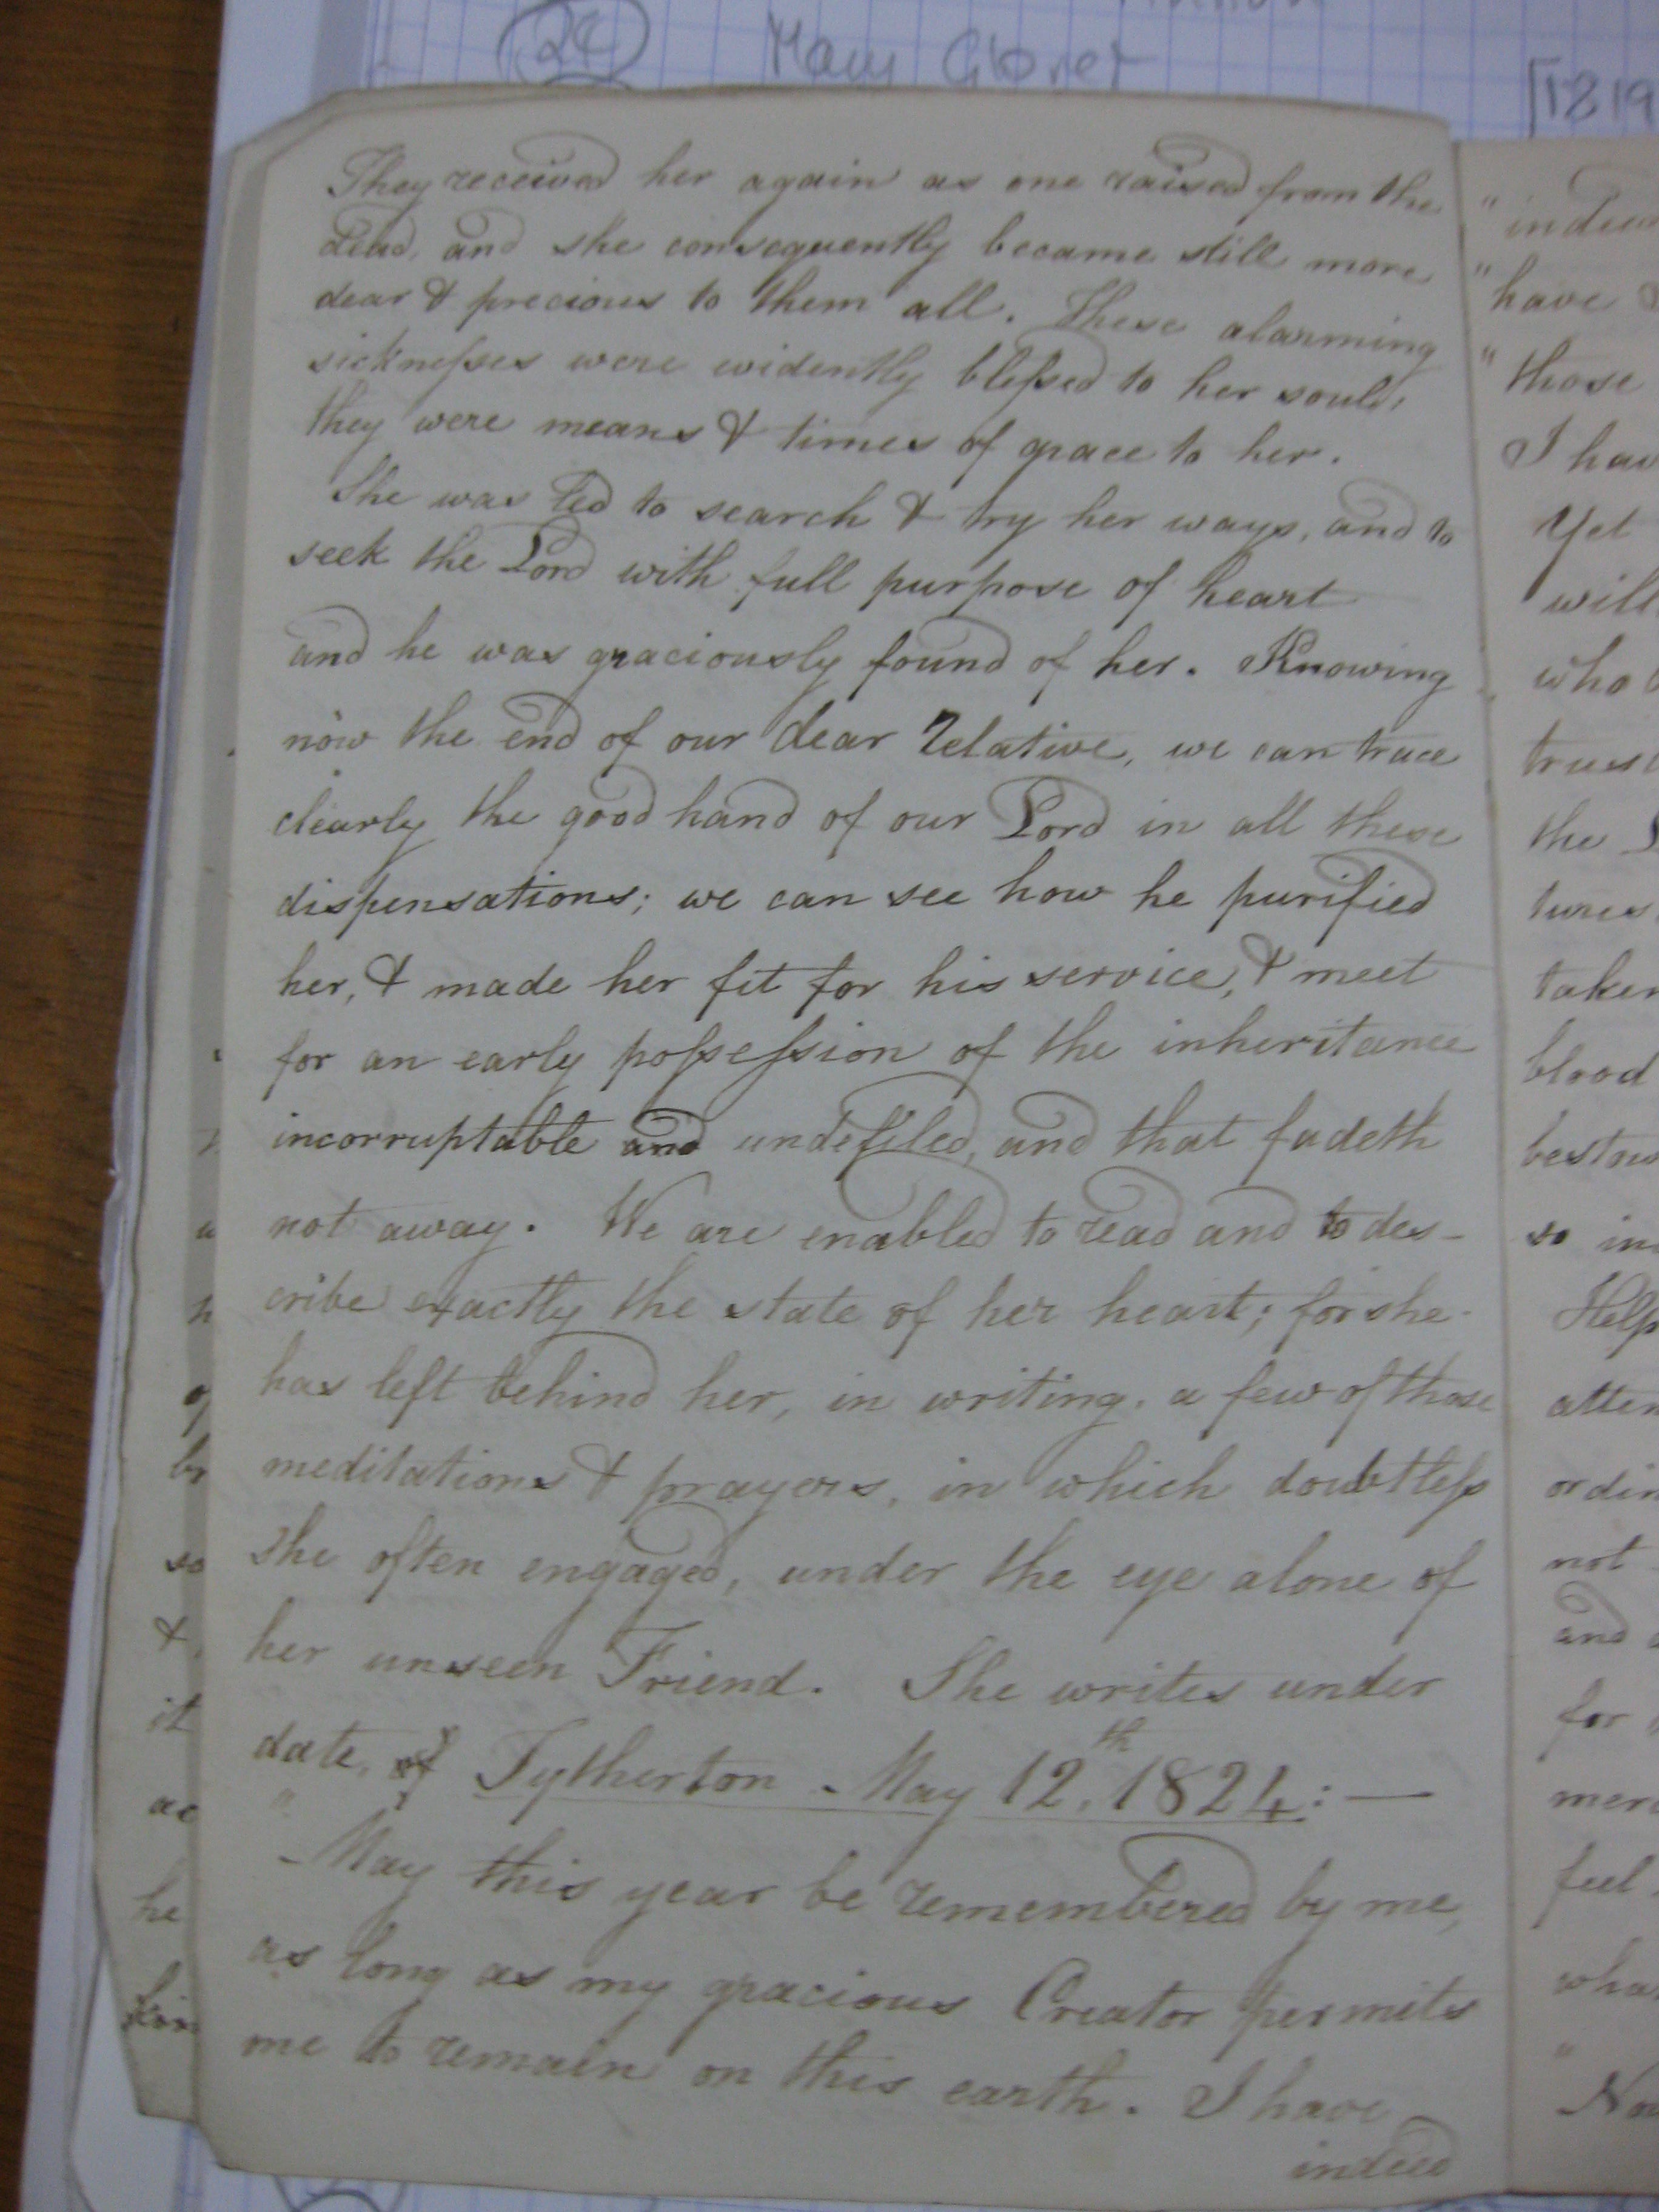 24 Mary Glover
[1819
They received her again as one raised from the
dead, and she consequently became still more
dear & precious to them all. These alarming
sicknesses were evidently blessed to her soul;
they were means & times of grace to her.
She was led to search & try her ways, and to
seek the Lord with full purpose of heart
and he was graciously found of her. Knowing
now the end of our dear relative, we can trace
clearly the good hand of our Lord in all these
dispensations; we can see how he purified
her, & made her fit for his service, & meet
for an early possession of the inheritance
incorruptable and undefiled, and that fadeth
not away. We are enabled to read and to des-
cribe exactly the state of her heart; for she
has left behind her, in writing, a few of those
meditations & prayers, in which doubtless
she often engaged, under the eye alone of
her unseen Friend. She writes under
date, of Tytherton May 12th, 1824: —
"May this year be remembered by me,
as long as my gracious Creator permits
me to remain on this earth. I have
indeed
"
"have
"those
I hav
Yet
will
who
the
taken
blood
so in
Help
not
and
for
feel
it
he